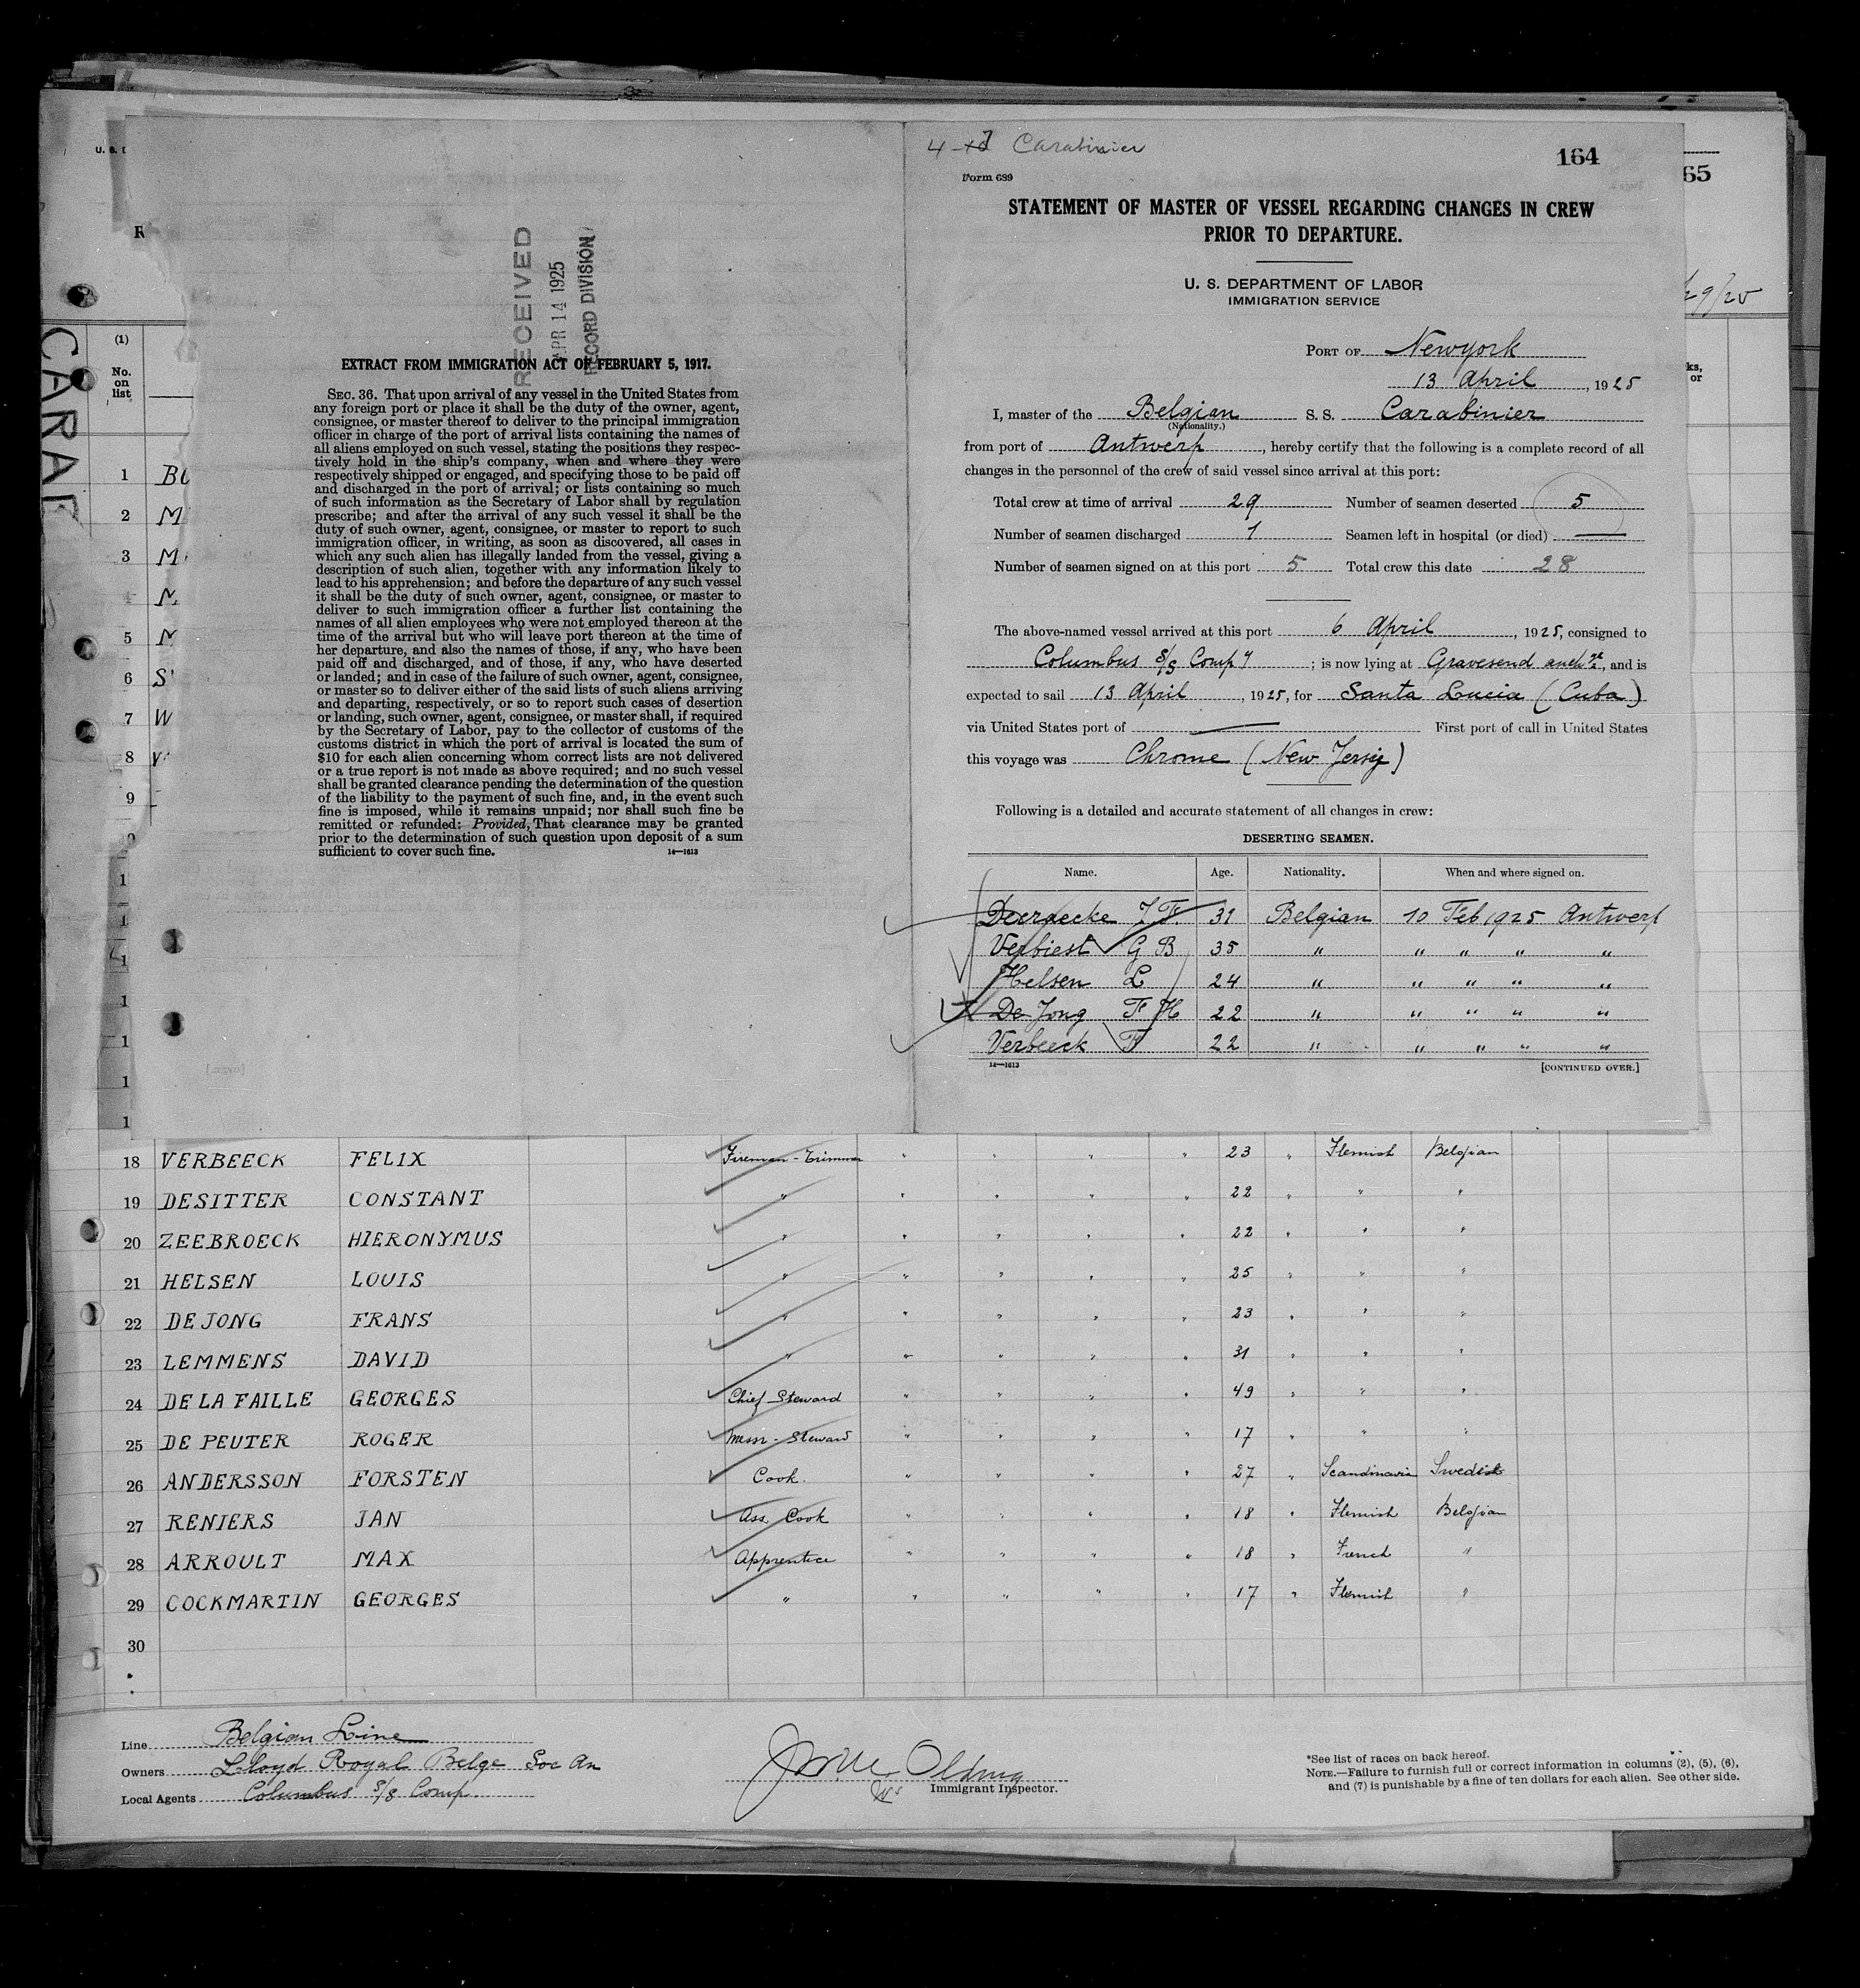 U. S. D
R
(1)
No.
on
list
CARAB
1
2 M
3 M
5
6 S
7 W
8
9
RECEIVED
APR 14 1925
RECORD DIVISION
EXTRACT FROM IMMIGRATION ACT OF FEBRUARY 5, 1917.
SEC. 36. That upon arrival of any vessel in the United States from
any foreign port or place it shall be the duty of the owner, agent,
consignee, or master thereof to deliver to the principal immigration
officer in charge of the port of arrival lists containing the names of
all aliens employed on such vessel, stating the positions they respec-
tively hold in the ship's company, when and where they were
respectively shipped or engaged, and specifying those to be paid off
and discharged in the port of arrival; or lists containing so much
of such information as the Secretary of Labor shall by regulation
prescribe; and after the arrival of any such vessel it shall be the
duty of such owner, agent, consignee, or master to report to such
immigration officer, in writing, as soon as discovered, all cases in
which any such alien has illegally landed from the vessel, giving a
description of such alien, together with any information likely to
lead to his apprehension; and before the departure of any such vessel
it shall be the duty of such owner, agent, consignee, or master to
deliver to such immigration officer a further list containing the
names of all alien employees who were not employed thereon at the
time of the arrival but who will leave port thereon at the time of
her departure, and also the names of those, if any, who have been
paid off and discharged, and of those, if any, who have deserted
or landed; and in case of the failure of such owner, agent, consignee,
or master so to deliver either of the said lists of such aliens arriving
and departing, respectively, or so to report such cases of desertion
or landing, such owner, agent, consignee, or master shall, if required
by the Secretary of Labor, pay to the collector of customs of the
customs district in which the port of arrival is located the sum of
$10 for each alien concerning whom correct lists are not delivered
or a true report is not made as above required; and no such vessel
shall be granted clearance pending the determination of the question
of the liability to the payment of such fine, and, in the event such
fine is imposed, while it remains unpaid; nor shall such fine be
remitted or refunded: Provided, That clearance may be granted
prior to the determination of such question upon deposit of a sum
sufficient to cover such fine. 14—1613
Carabinier
164
65
Form 689
STATEMENT OF MASTER OF VESSEL REGARDING CHANGES IN CREW
PRIOR TO DEPARTURE.
U. S. DEPARTMENT OF LABOR
IMMIGRATION SERVICE
29/25
PORT OF Newyork
13 April, 1925
I, master of the Belgian S. S. Carabinier
(Nationality.)
from port of Antwerp, hereby certify that the following is a complete record of all
changes in the personnel of the crew of said vessel since arrival at this port:
Total crew at time of arrival 29 Number of seamen deserted 5
Number of seamen discharged 1 Seamen left in hospital (or died) —
Number of seamen signed on at this port 5 Total crew this date 28
The above-named vessel arrived at this port 6 April, 1925, consigned to
Columbus S/S Compy; is now lying at Gravesend anchge, and is
expected to sail 13 April, 1925, for Santa Lucia (Cuba)
via United States port of — First port of call in United States
this voyage was Chrome (New Jersey)
Following is a detailed and accurate statement of all changes in crew:
DESERTING SEAMEN.
Name. Age. Nationality. When and where signed on.
Decraecke J F. 31 Belgian 10 Feb 1925 Antwerp
Verbiest G B 35 " " " " "
Helsen L 24 " " " " "
De Jong F H 22 " " " " "
Verbeeck F 22 " " " " "
14—1613 [CONTINUED OVER.]
18 VERBEECK FELIX Fireman-Trimmer " " " " 23 " Flemish Belgian
19 DESITTER CONSTANT " " " " " 22 " " "
20 ZEEBROECK HIERONYMUS " " " " " 22 " " "
21 HELSEN LOUIS " " " " " 25 " " "
22 DE JONG FRANS " " " " " 23 " " "
23 LEMMENS DAVID " " " " " 31 " " "
24 DE LA FAILLE GEORGES Chief Steward " " " " 49 " " "
25 DE PEUTER ROGER Mess-Steward " " " " 17 " " "
26 ANDERSSON FORSTEN Cook " " " " 27 " Scandinavia Swedish
27 RENIERS JAN Ass. Cook " " " " 18 " Flemish Belgian
28 ARROULT MAX Apprentice " " " " 18 " French "
29 COCKMARTIN GEORGES " " " " " 17 " Flemish "
30
Line Belgian Line
Owners Lloyd Royal Belge Soc An
Local Agents Columbus S/S Comp.
Immigrant Inspector.
*See list of races on back hereof.
NOTE.—Failure to furnish full or correct information in columns (2), (5), (6),
and (7) is punishable by a fine of ten dollars for each alien. See other side.